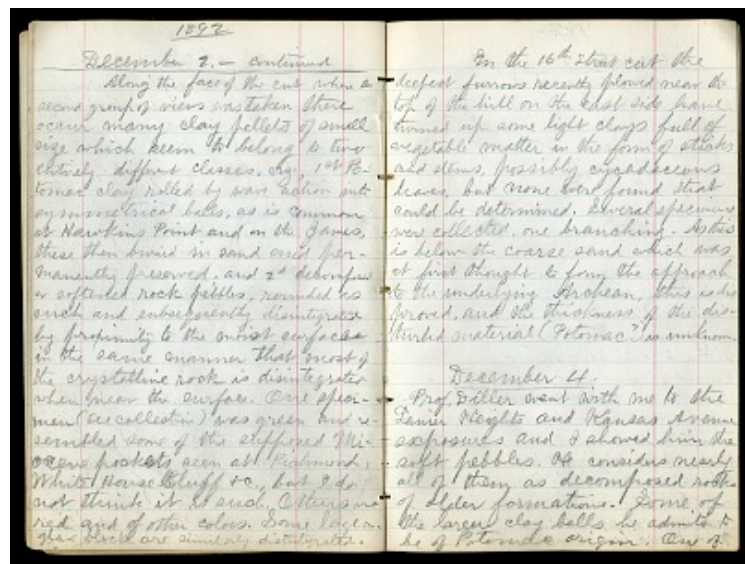 1892
December 2. — continued
Along the face of the cut where a
second group of views was taken there
occur many clay pellets of small
size which seem to belong to two
entirely different classes, e.g., 1st Po-
tomac clay rolled by wave action into
symmetrical balls, as is common
at Hawkins Point and on the James,
these then buried in sand and per-
manently preserved, and 2d decomposed
or softened rock pebbles, rounded as
such and subsequently disintegrated
by propinquity to the moist surfaces
in the same manner that most of
the crystalline rock is disintegrated
when near the surface. One speci-
men (see collection) was green and re-
sembled some of the supposed Mi-
ocene pockets seen at Richmond,
White House Bluff &c., but I do
not think it is such. Others are
red and of other colors. Some large
blocks are similarly disintegrated.
In the 16th Street cut the
deepest furrows recently plowed near the
top of the hill on the east side have
turned up some light clays full of
vegetable matter in the form of sticks
and stems, possibly cycadaceous
leaves but none were found that
could be determined. Several specimens
were collected, one branching. As this
is below the coarse sand which was
at first thought to form the approach
to the underlying Archean, this is dis-
proved, and the thickness of the dis-
turbed material (Potomac?) is unknown.
December 4.
Prof. Diller went with me to the
Lanier Heights and Kansas Avenue
exposures and I showed him the
soft pebbles. He considers nearly
all of them as decomposed rocks
of older formations. Some of
the larger clay balls he admits to
be of Potomac origin. One of